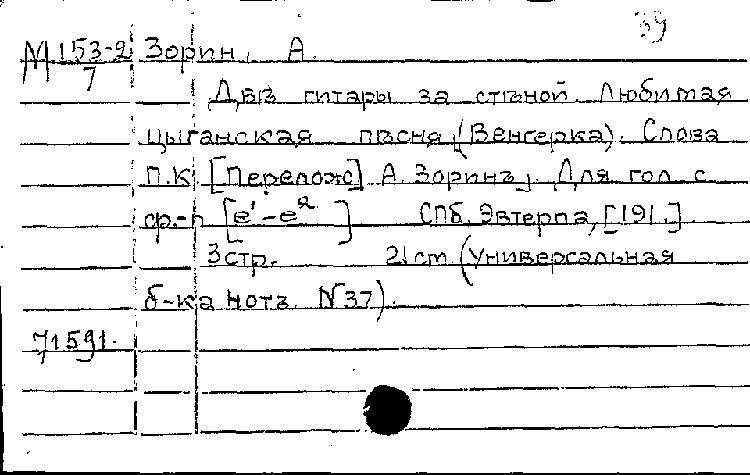 39
М 153-2 Зорин, А.
7
Двѣ гитары за стѣной. Любимая
цыганская пѣсня (Венгерка). Слова
П.К. [Перелож] А. Зоринъ. Для гол. с
ф.-п [e'-e² ] СПб. Эвтерпа, [191.]
3 стр. 21 cm (Универсальная
б-ка нотъ. N 37).
71591.